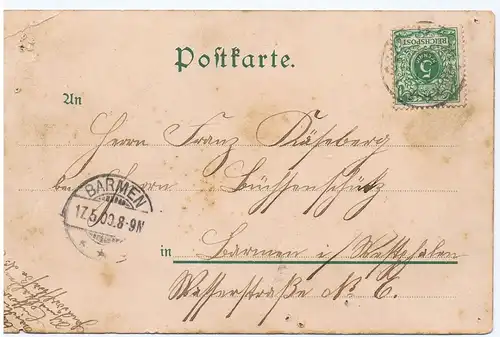 Postkarte.
REICHSPOST
5
An
Herrn Franz Käseberg
bei Herrn Büchsenschütz
BARMEN
17.5.00.8-9N
in Barmen i/Westphalen
Wasserstraße No 6.